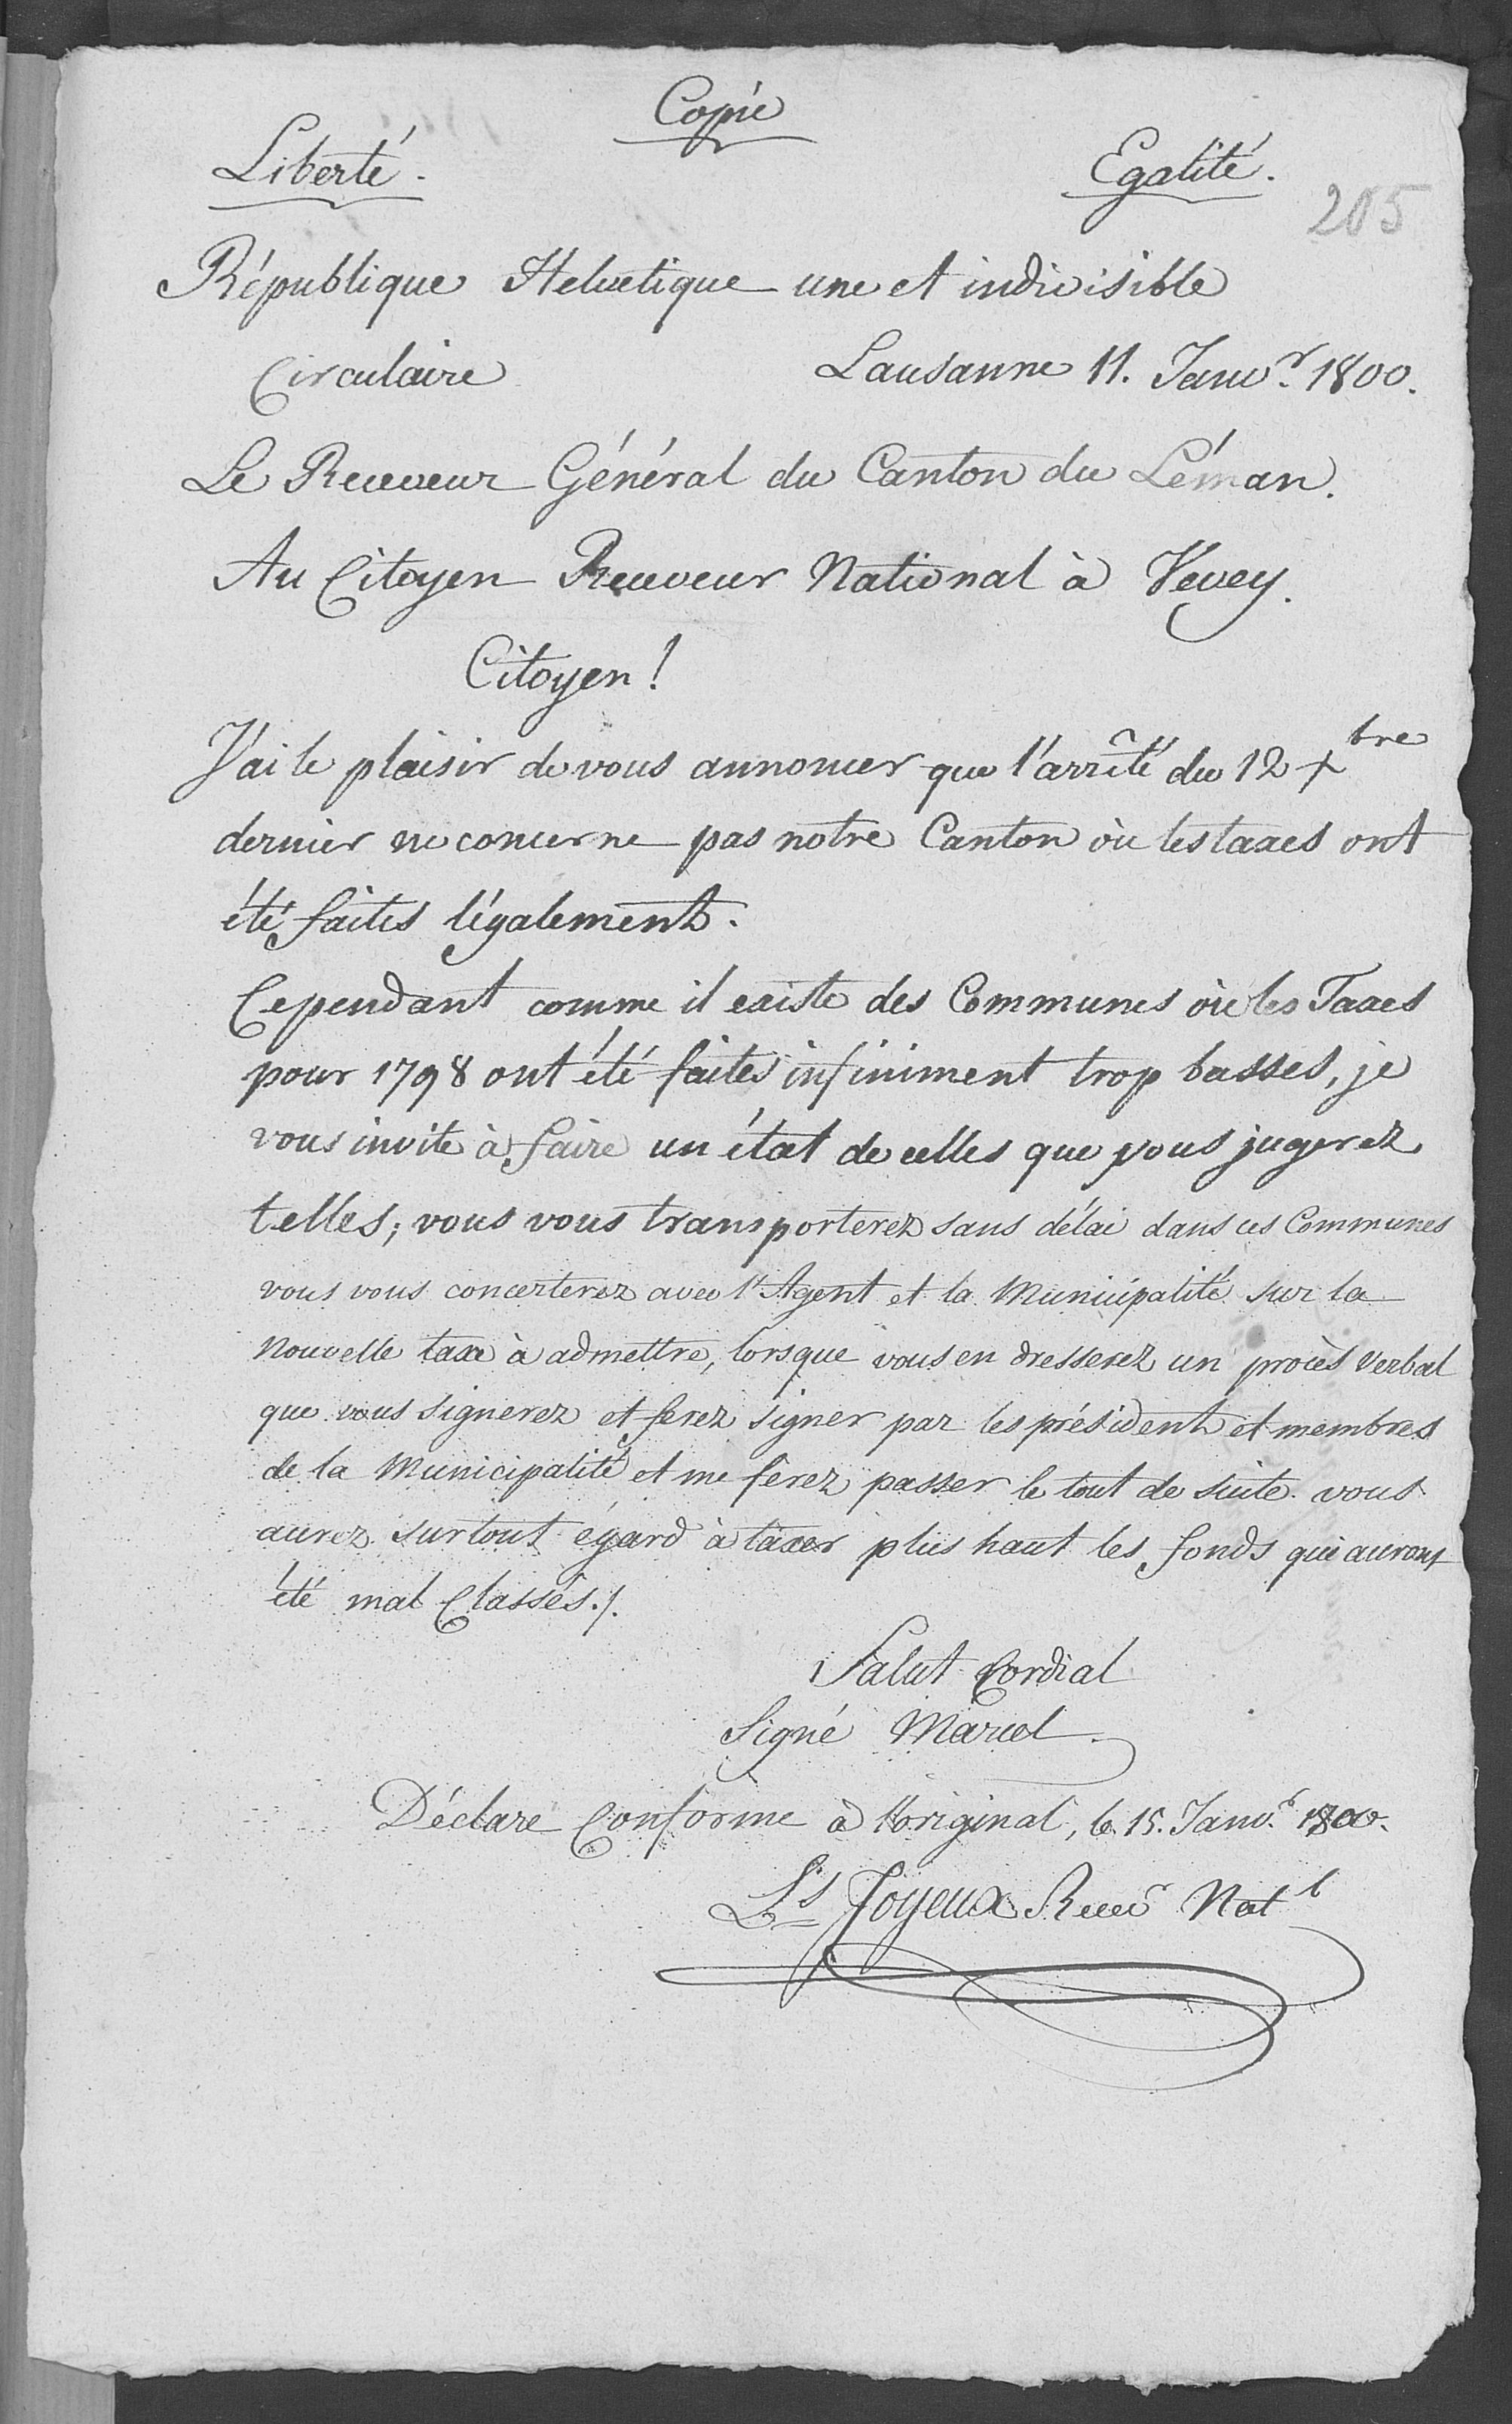 Copie
Liberté. Egalité.
205
République Helvetique une et indivisible
Circulaire Lausanne 11. Janv.r 1800.
Le Receveur Général du Canton du Léman.
Au Citoyen Receveur National à Vevey.
Citoyen!
J'ai le plaisir de vous annoncer que l'arrêté du 12 Xbre
dernier ne concerne pas notre Canton où les taxes ont
été faites légalement.
Cependant comme il existe des Communes où les Taxes
pour 1798 ont été faites infiniment trop basses, je
vous invite à faire un état de celles que vous jugerez
telles; vous vous transporterez sans délai dans ces Communes
vous vous concerterez avec l'Agent et la Municipalité sur la
Nouvelle taxe à admettre, lorsque vous en dresserez un procès verbal
que vous signerez et ferez signer par les président et membres
de la Municipalité et me ferez passer le tout de suite. vous
aurez surtout égard à taxer plus haut les fonds qui auront
été mal Classés./.
Salut Cordial
Signé Marcel.
Déclaré Conforme à l'original, le 15. Janv.r 1800.
Ls Joyeux Recevr Natl